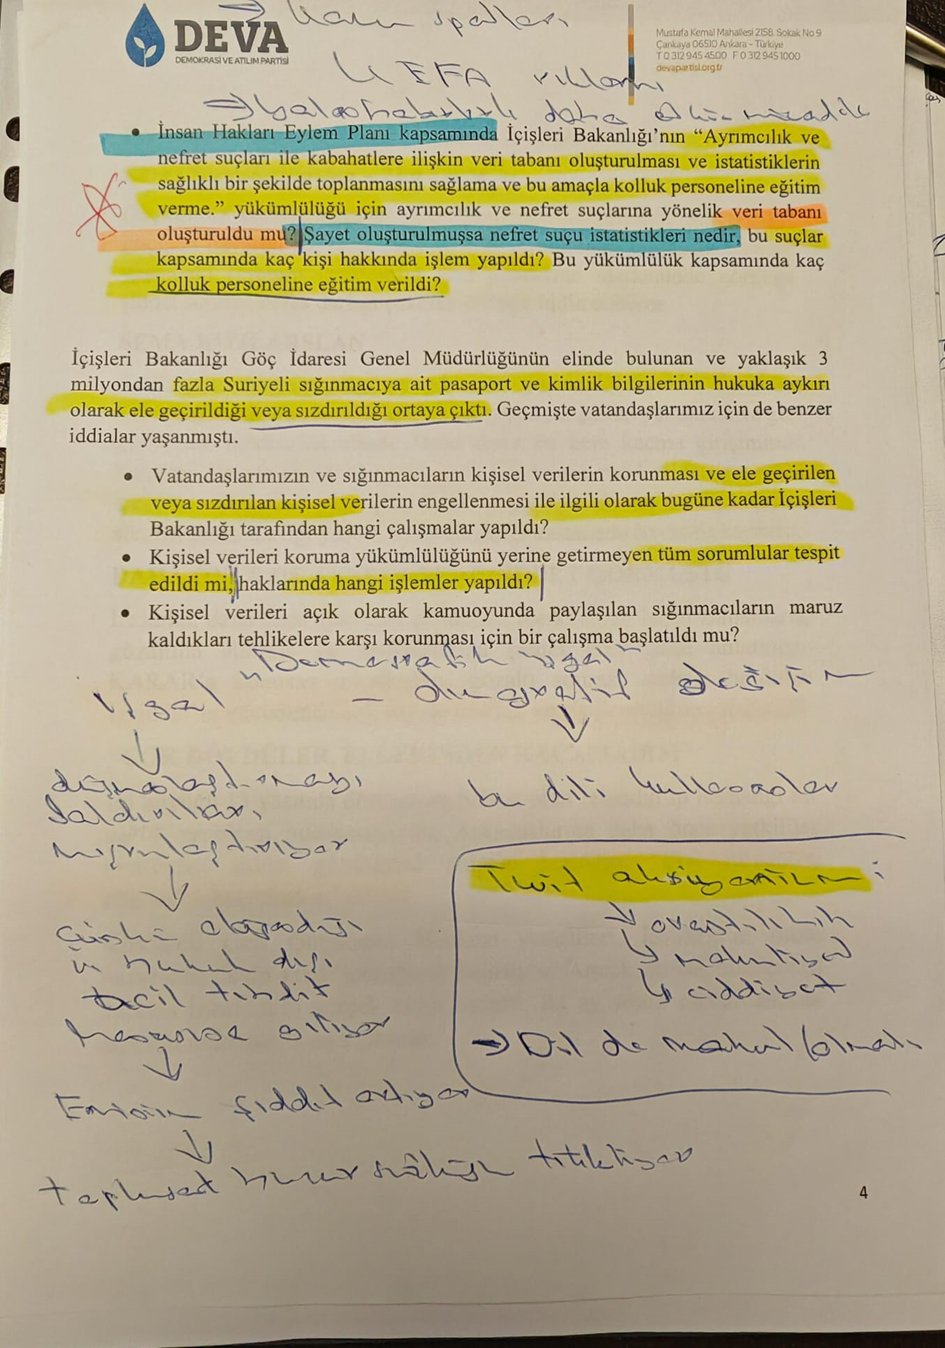 → kamu spotları
DEVA
DEMOKRASİ VE ATILIM PARTİSİ
Mustafa Kemal Mahallesi 2158. Sokak No 9
Çankaya 06510 Ankara – Türkiye
T 0 312 945 4500 F 0 312 945 1000
devapartisi.org.tr
UEFA
→ daha etkin mücadele
• İnsan Hakları Eylem Planı kapsamında İçişleri Bakanlığı’nın “Ayrımcılık ve
nefret suçları ile kabahatlere ilişkin veri tabanı oluşturulması ve istatistiklerin
sağlıklı bir şekilde toplanmasını sağlama ve bu amaçla kolluk personeline eğitim
verme.” yükümlülüğü için ayrımcılık ve nefret suçlarına yönelik veri tabanı
oluşturuldu mu? Şayet oluşturulmuşsa nefret suçu istatistikleri nedir, bu suçlar
kapsamında kaç kişi hakkında işlem yapıldı? Bu yükümlülük kapsamında kaç
kolluk personeline eğitim verildi?
İçişleri Bakanlığı Göç İdaresi Genel Müdürlüğünün elinde bulunan ve yaklaşık 3
milyondan fazla Suriyeli sığınmacıya ait pasaport ve kimlik bilgilerinin hukuka aykırı
olarak ele geçirildiği veya sızdırıldığı ortaya çıktı. Geçmişte vatandaşlarımız için de benzer
iddialar yaşanmıştı.
• Vatandaşlarımızın ve sığınmacıların kişisel verilerin korunması ve ele geçirilen
veya sızdırılan kişisel verilerin engellenmesi ile ilgili olarak bugüne kadar İçişleri
Bakanlığı tarafından hangi çalışmalar yapıldı?
• Kişisel verileri koruma yükümlülüğünü yerine getirmeyen tüm sorumlular tespit
edildi mi, haklarında hangi işlemler yapıldı?
• Kişisel verileri açık olarak kamuoyunda paylaşılan sığınmacıların maruz
kaldıkları tehlikelere karşı korunması için bir çalışma başlatıldı mu?
"Demografik işgal"
İşgal – demografik değişim
düşmanlaştırmayı
saldırıları
meşrulaştırıyor
bu dili kullananlar
Twit aksiyonları:
→ orantılılık
→ makuliyet
→ ciddiyet
→ Dil de makul olmalı
Çünkü
hukuk dışı
acil tehdit
gidiyor
şiddet artıyor
4